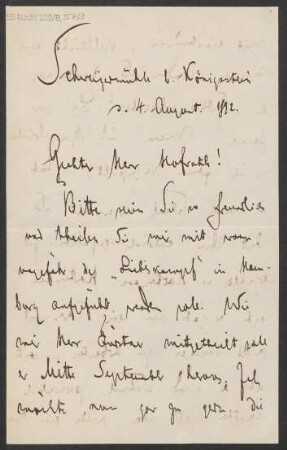 Schweizermühle b. Königstein
d. 4. August. 1892.
Geehrter Herr Hofrath!
Bitte sein Sie so freundlich
und theilen Sie mir mit wann
ungefähr der „Liebeskampf" in Ham-
burg aufgeführt werden soll. Wie
mir Herr mitgetheilt soll
er Mitte September heraus. Ich
möchte nun gar zu gern die